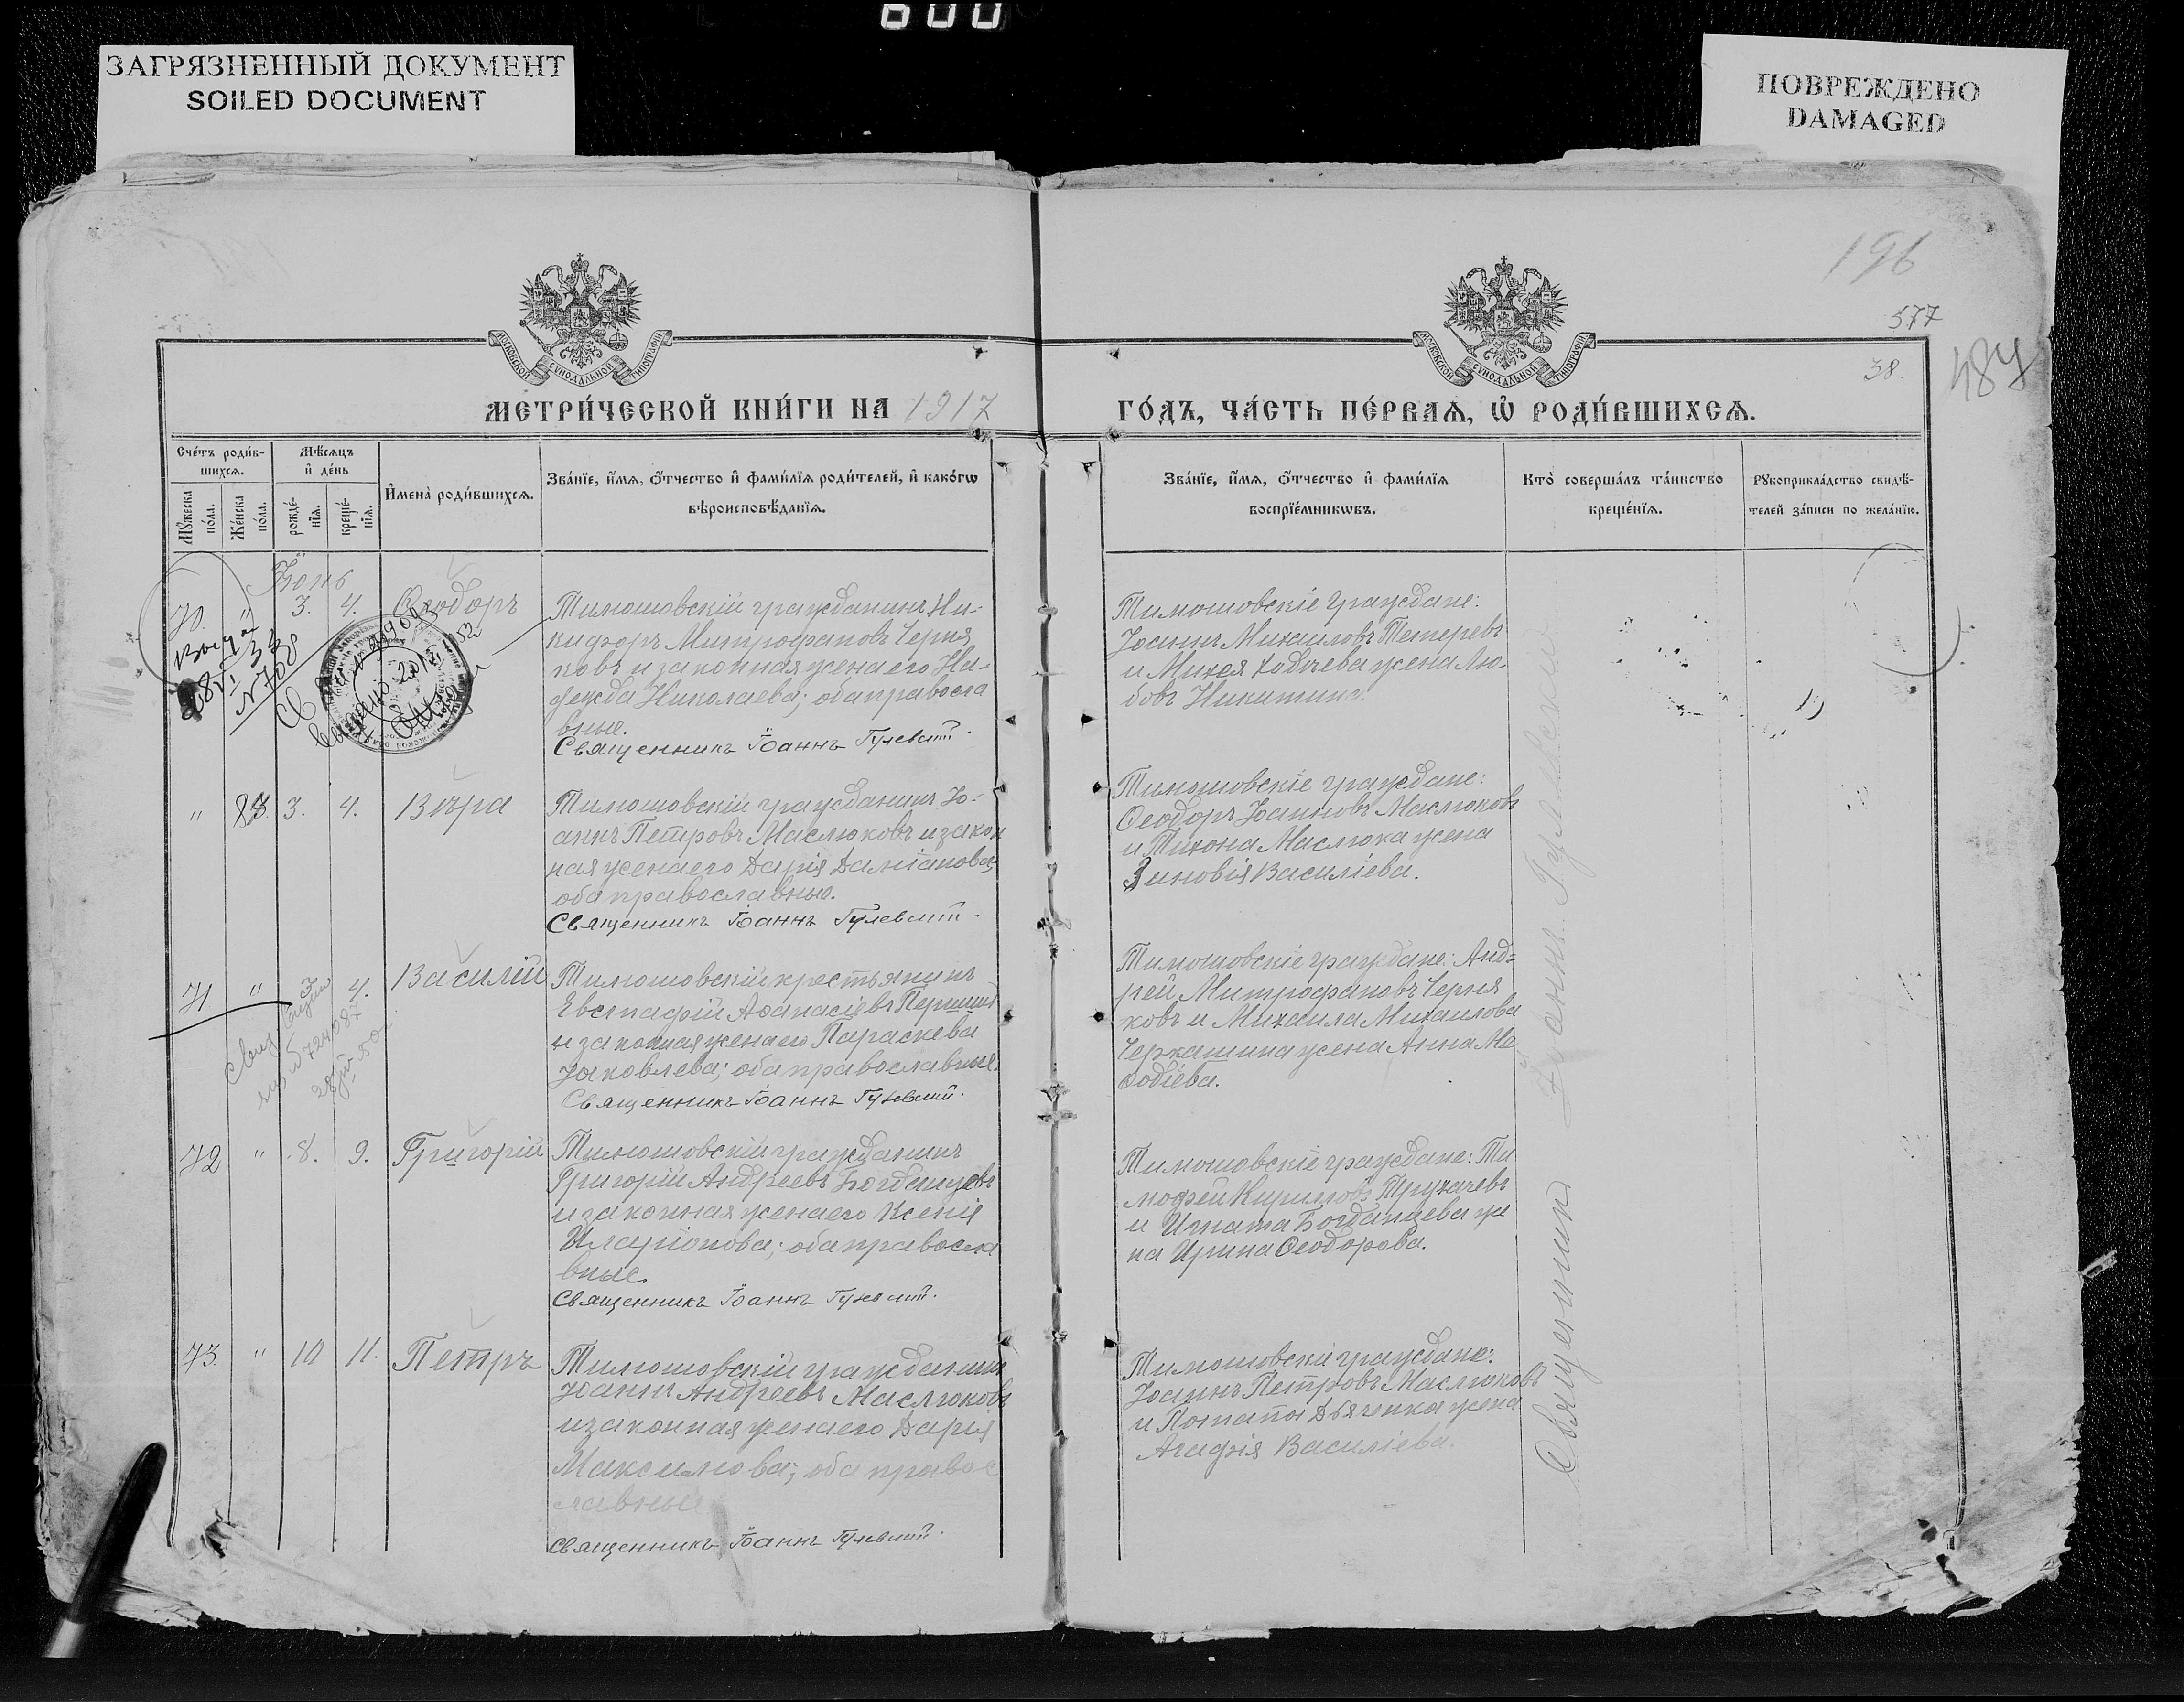 600
ЗАГРЯЗНЕННЫЙ ДОКУМЕНТ
SOILED DOCUMENT
ПОВРЕЖДЕНО
DAMAGED
196
577
38.
МОСКОВСКОЙ СѴНОДАЛЬНОЙ ТИПОГРАФІИ
МОСКОВСКОЙ СѴНОДАЛЬНОЙ ТИПОГРАФІИ
МЕТРИ́ЧЕСКОЙ КНИ́ГИ НА 1917
ГО́ДЪ, ЧА́СТЬ ПЕ́РВАѦ, Ѡ҆ РОДИ́ВШИХСѦ.
Сче́тъ роди́в-
шихсѧ.
Мѣ́сѧцъ
и҆ де́нь
Мꙋ́жеска
по́ла.
Же́нска
по́ла.
рожде́-
нїѧ.
креще́-
нїѧ.
И҆мена̀ роди́вшихсѧ.
Зва́нїе, и҆́мѧ, ѻ҆́тчество и҆ фами́лїѧ роди́телей, и҆ како́гѡ
вѣроисповѣ́данїѧ.
Зва́нїе, и҆́мѧ, ѻ҆́тчество и҆ фами́лїѧ
воспрїе́мникѡвъ.
Кто̀ соверша́лъ та́инство
креще́нїѧ.
Рꙋкоприкла́дство свидѣ́-
телей за́писи по жела́нїю.
Іюнь
70. " 3. 4. Ѳеодоръ
Тимошовскій гражданинъ Ни-
кифоръ Митрофановъ Черня
ковъ и законная жена его На-
дежда Николаева; оба правосла
вные.
Священникъ Іоаннъ Гулевский.
Тимошовскіе граждане:
Іоаннъ Михаиловъ Тетеревъ
и Михея жена Лю-
бовь Никитина.
№ 708
" 83. 3. 4. Вѣра
Тимошовскій гражданинъ Іо-
аннъ Петровъ Маслюковъ и закон
ная жена его Дарія Даміанова;
оба православные.
Священникъ Іоаннъ Гулевский.
Тимошовскіе граждане:
Ѳеодоръ Іоанновъ Маслюковъ
и Тихона Маслюка жена
Зиновія Василіева.
71. " 3 4. Василій
Тимошовскій крестьянинъ
Евстафій Аѳанасіевъ Першинъ
и законная жена его Параскева
Іаковлева; оба православные.
Священникъ Іоаннъ Гулевский.
Тимошовскіе граждане: Анд=
рей Митрофановъ Черня
ковъ и Михаила Михаилова
Черкашина жена Анна Ме
ѳодіева.
72 " 8. 9. Григорій
Тимошовскій гражданинъ
Григорій Андреевъ Богданцевъ
и законная жена его Ксенія
Иларіонова; оба правосла
вные.
Священникъ Іоаннъ Гулевский.
Тимошовскіе граждане: Ти
мофей Кириловъ Трухачевъ
и Игната Богданцева же
на Ирина Ѳеодорова.
73. " 10 11. Петръ
Тимошовскій гражданинъ
Іоаннъ Андреевъ Маслюковъ
и законная жена его Дарія
Максимова; оба правос
лавные
Священникъ Іоаннъ Гулевский.
Тимошовскіе граждане:
Іоаннъ Петровъ Маслюковъ
и Потапа Дьяченка жена
Агафія Василіева.
Священникъ Іоаннъ Гулевский